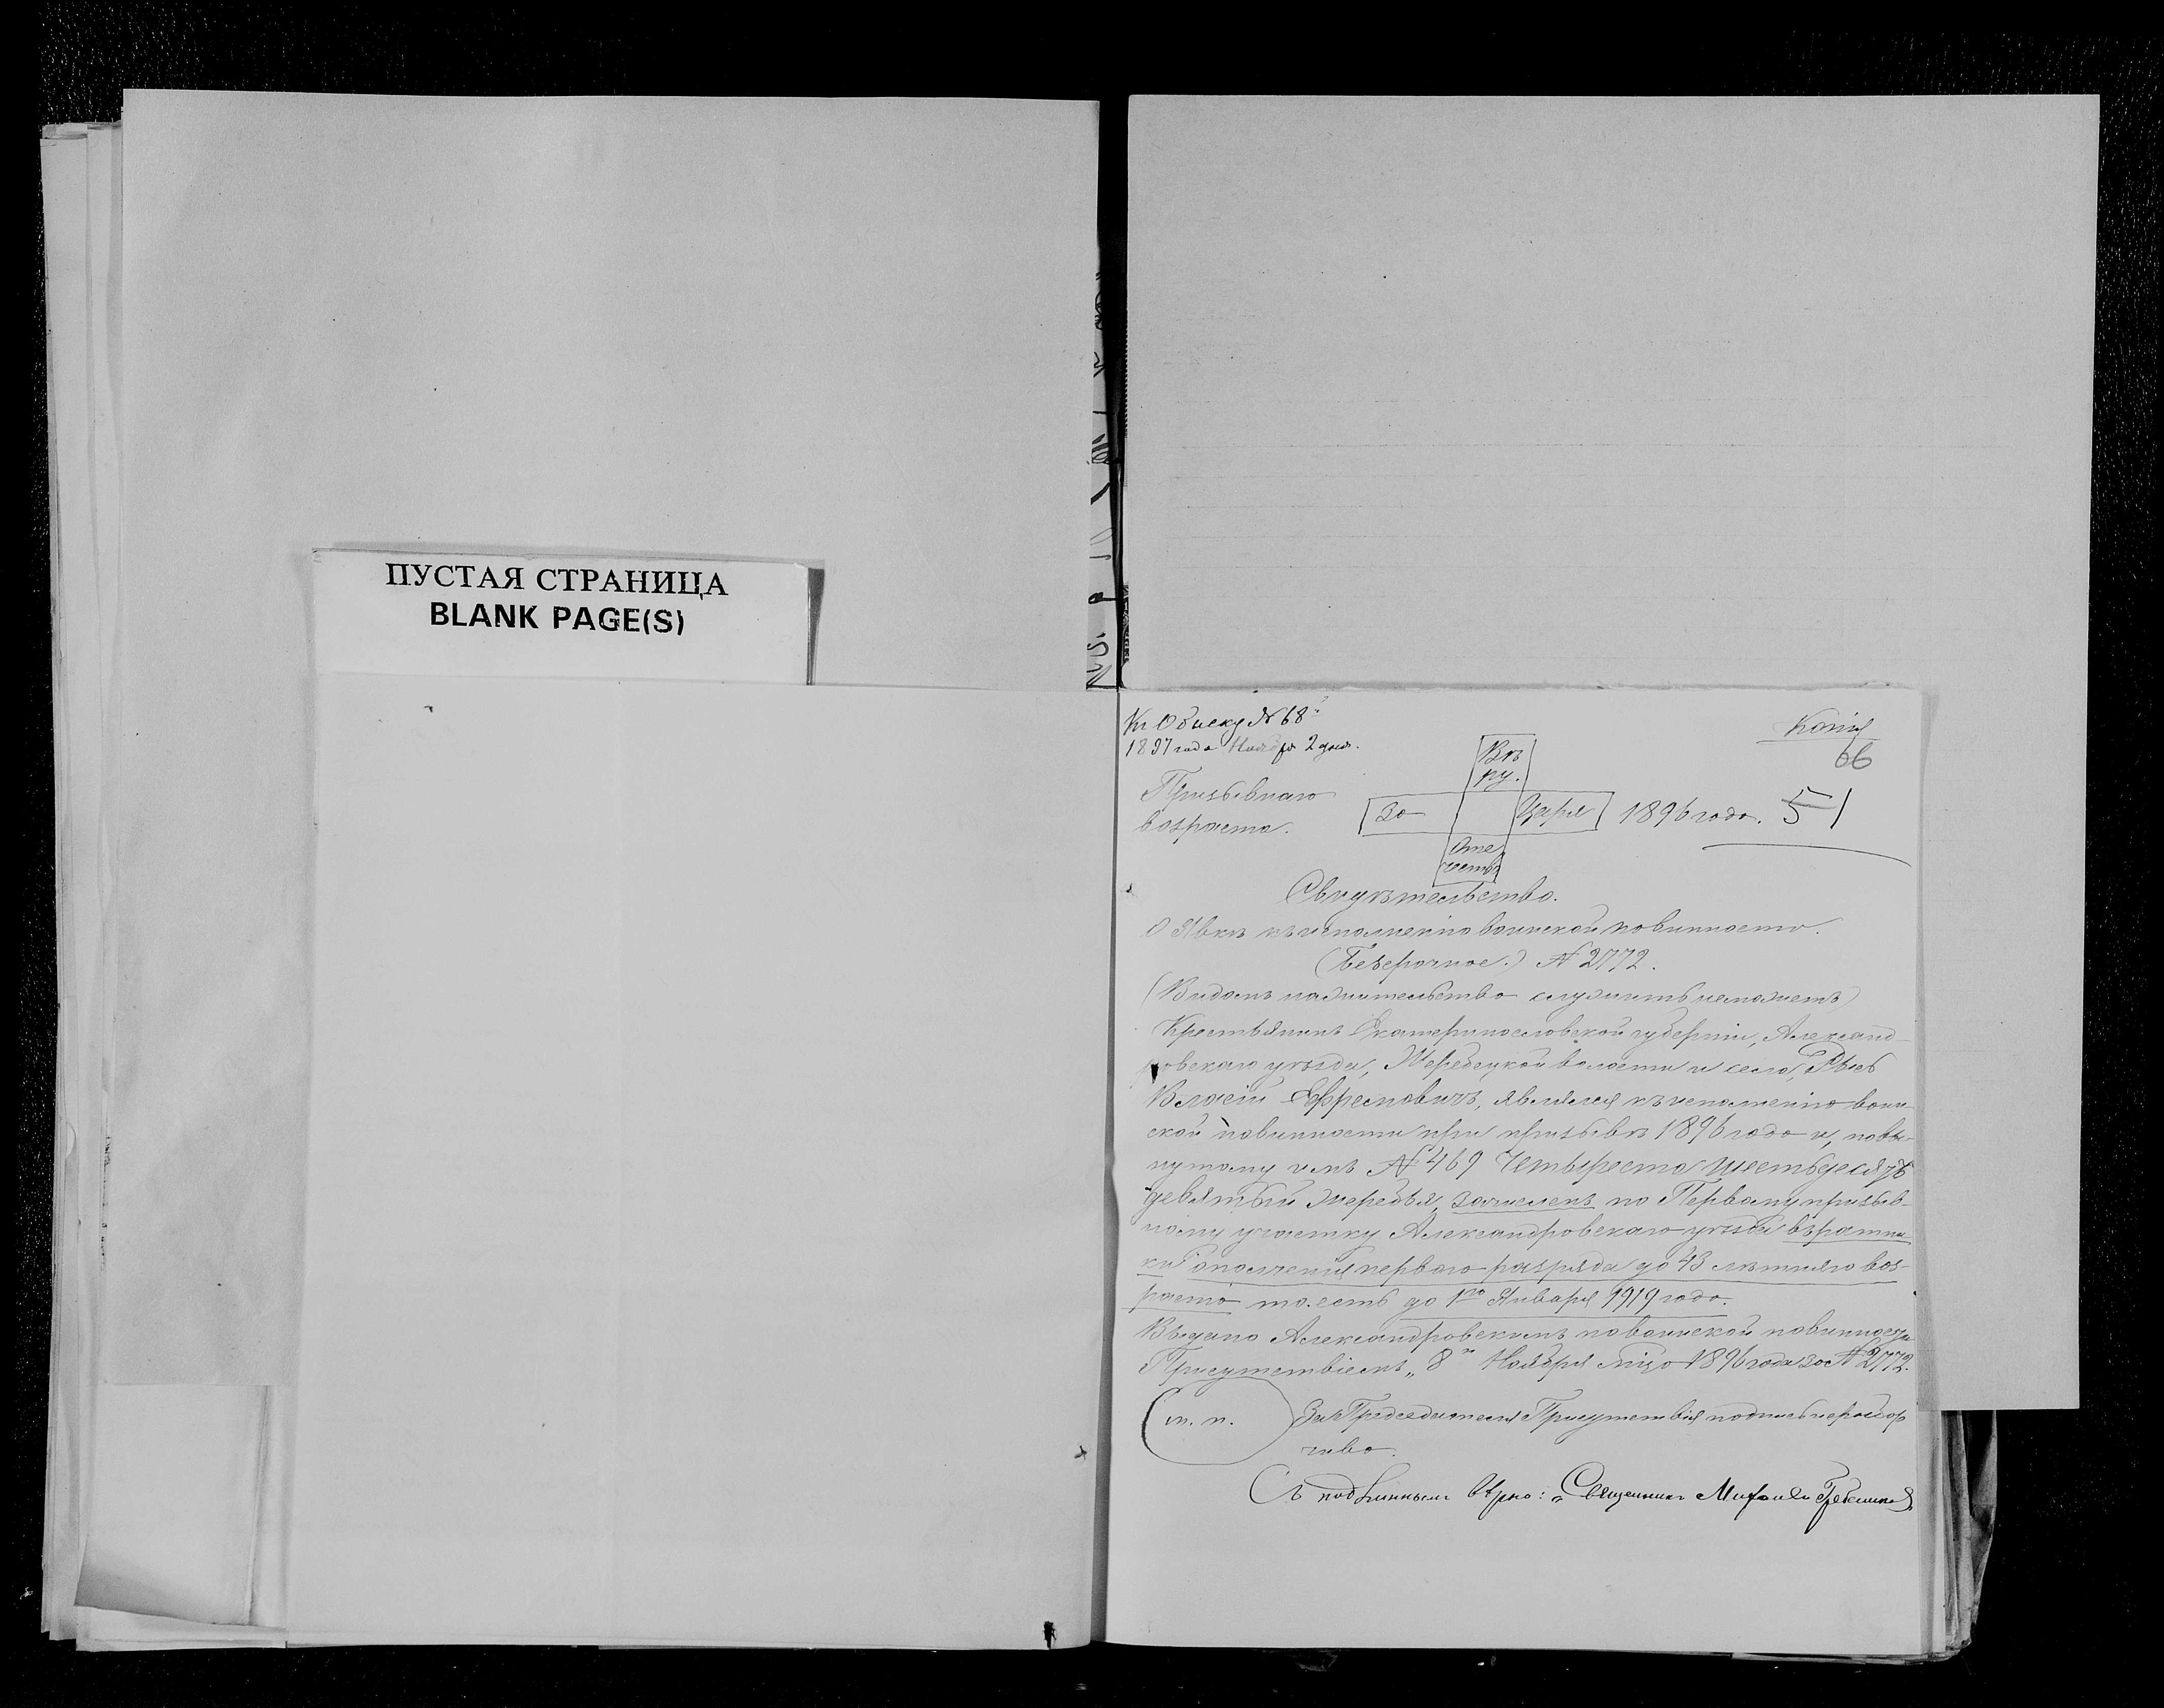 ПУСТАЯ СТРАНИЦА
BLANK PAGE(S)
Къ Обыску № 68й
1897 года Ноября 2 дня.
Копія
66
Призывнаго
возраста.
Вѣ
ру.
За
Царя
Оте
чество
1896 года.
51
Свидѣтельство.
О Явкѣ къ исполненію воинской повинности.
(Безсрочное.) № 2772.
(Видомъ на жительство служить не можетъ)
Крестьянинъ Екатеринославской губерніи, Александ-
ровскаго уѣзда, Жеребецкой волости и села,
Власій Ефремовичъ, являлся къ исполненію воин-
ской повинности при призывѣ 1896 года и, по вы-
нутому имъ № 469 Четыреста шестьдесятъ
девятый жеребья, зачисленъ по Первому призыв-
ному участку Александровскаго уѣзда въ ратни
ки ополченія перваго разряда до 43 лѣтняго воз-
раста то есть до 1го Января 1919 года.
Выдано Александровскимъ по воинской повинности
Присутствіемъ „8" Ноября мца 1896 года за № 2772.
м. п.
За Председателя Присутствія подпись неразбор
чиво.
Съ подлиннымъ вѣрно: Священникъ Михаилъ